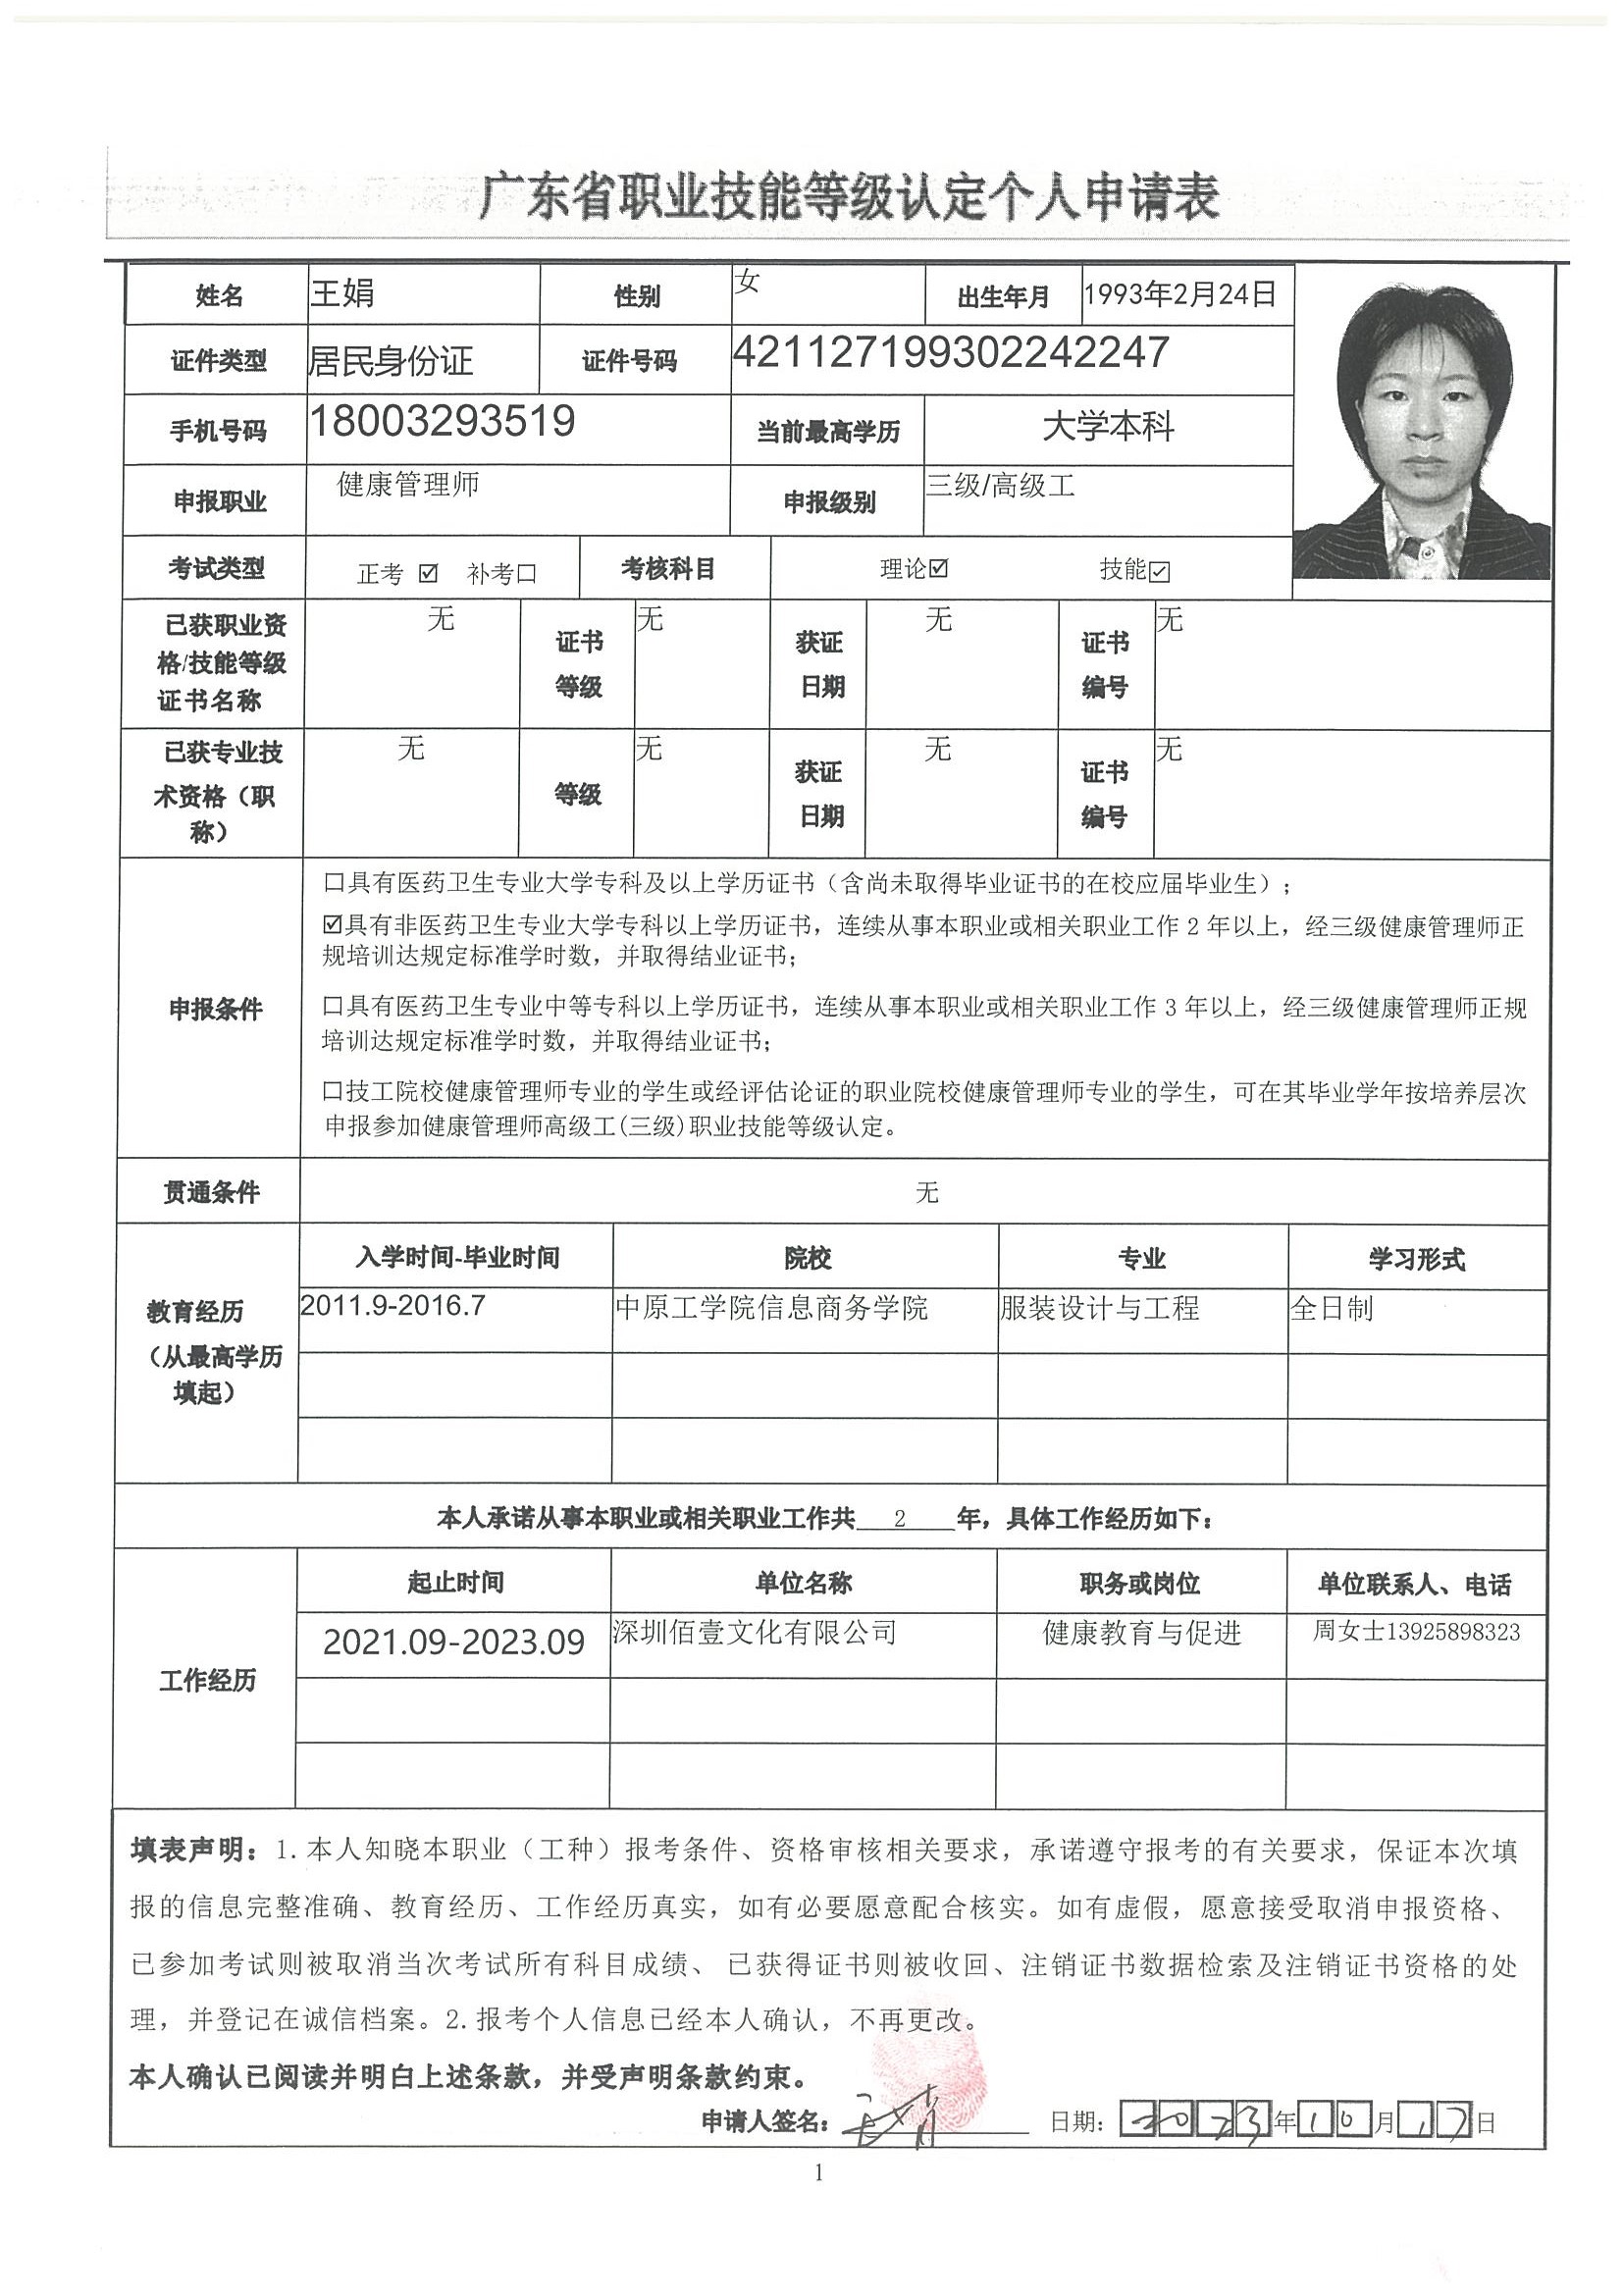 广东省职业技能等级认定个人申请表
姓名 王娟 性别 女 出生年月 1993年2月24日
证件类型 居民身份证 证件号码 421127199302242247
手机号码 18003293519 当前最高学历 大学本科
申报职业 健康管理师 申报级别 三级/高级工
考试类型 正考☑ 补考口 考核科目 理论☑ 技能☑
已获职业资格/技能等级证书名称 无 证书等级 无 获证日期 无 证书编号 无
已获专业技术资格（职称） 无 等级 无 获证日期 无 证书编号 无
申报条件
口具有医药卫生专业大学专科及以上学历证书（含尚未取得毕业证书的在校应届毕业生）；
☑具有非医药卫生专业大学专科以上学历证书，连续从事本职业或相关职业工作 2 年以上，经三级健康管理师正
规培训达规定标准学时数，并取得结业证书；
口具有医药卫生专业中等专科以上学历证书，连续从事本职业或相关职业工作 3 年以上，经三级健康管理师正规
培训达规定标准学时数，并取得结业证书；
口技工院校健康管理师专业的学生或经评估论证的职业院校健康管理师专业的学生，可在其毕业学年按培养层次
申报参加健康管理师高级工(三级)职业技能等级认定。
贯通条件 无
教育经历（从最高学历填起）
入学时间-毕业时间 院校 专业 学习形式
2011.9-2016.7 中原工学院信息商务学院 服装设计与工程 全日制
本人承诺从事本职业或相关职业工作共 2 年，具体工作经历如下：
工作经历
起止时间 单位名称 职务或岗位 单位联系人、电话
2021.09-2023.09 深圳佰壹文化有限公司 健康教育与促进 周女士13925898323
填表声明：1.本人知晓本职业（工种）报考条件、资格审核相关要求，承诺遵守报考的有关要求，保证本次填
报的信息完整准确、教育经历、工作经历真实，如有必要愿意配合核实。如有虚假，愿意接受取消申报资格、
已参加考试则被取消当次考试所有科目成绩、已获得证书则被收回、注销证书数据检索及注销证书资格的处
理，并登记在诚信档案。2.报考个人信息已经本人确认，不再更改。
本人确认已阅读并明白上述条款，并受声明条款约束。
申请人签名： 日期：2023年10月17日
1